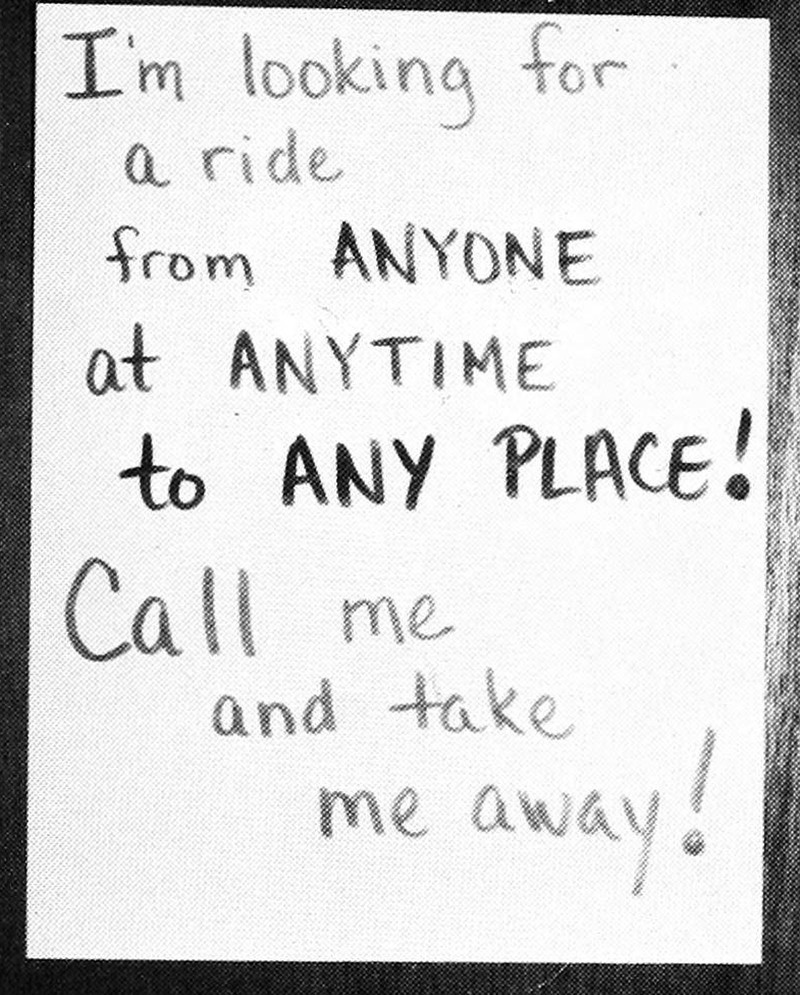 I'm looking for
a ride
from ANYONE
at ANYTIME
to ANY PLACE!
Call me
and take
me away!